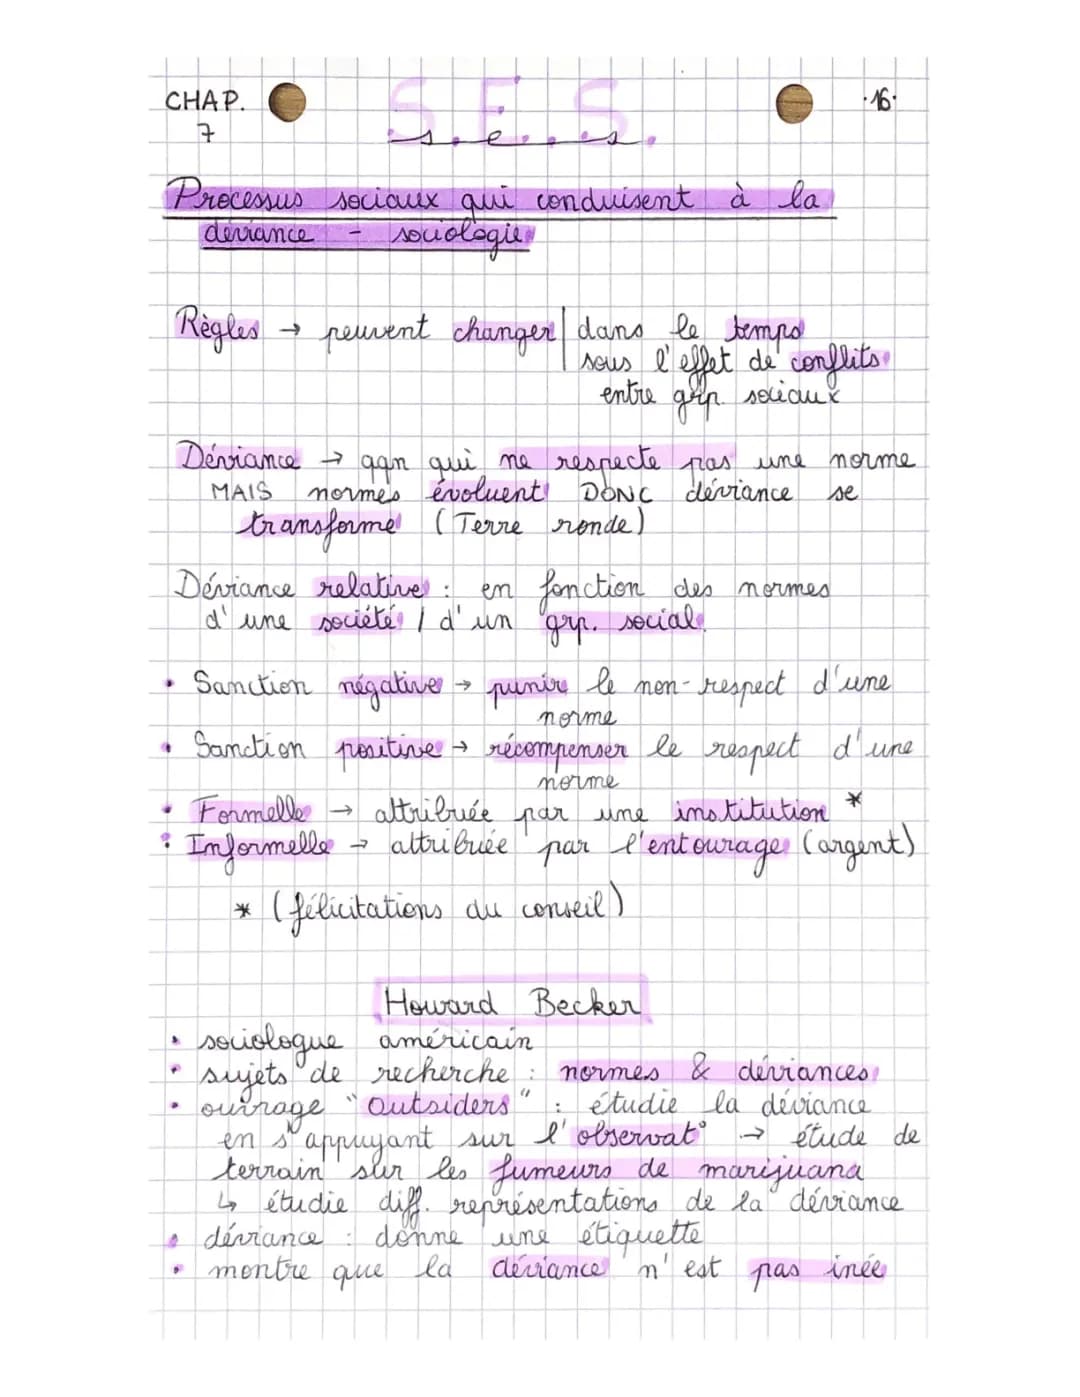 CHAP.
7
S.E.S.
s.e.s.
.16.
Processus sociaux qui conduisent à la
déviance - sociologie
Règles → peuvent changer dans le temps
sous l'effet de conflits
entre grp. sociaux
Déviance → qqn qui ne respecte pas une norme
MAIS normes évoluent DONC déviance se
transforme (Terre ronde)
Déviance relative : en fonction des normes
d'une société / d'un grp. social.
• Sanction négative → punir le non-respect d'une
norme
• Sanction positive → récompenser le respect d'une
norme
• Formelle → attribuée par une institution *
• Informelle → attribuée par l'entourage (argent)
* (félicitations du conseil)
Howard Becker
• sociologue américain
• sujets de recherche : normes & déviances
• ouvrage "Outsiders" : étudie la déviance
en s'appuyant sur l'observat° → étude de
terrain sur les fumeurs de marijuana
↳ étudie diff. représentations de la déviance
• déviance : donne une étiquette
• montre que la déviance n'est pas inée